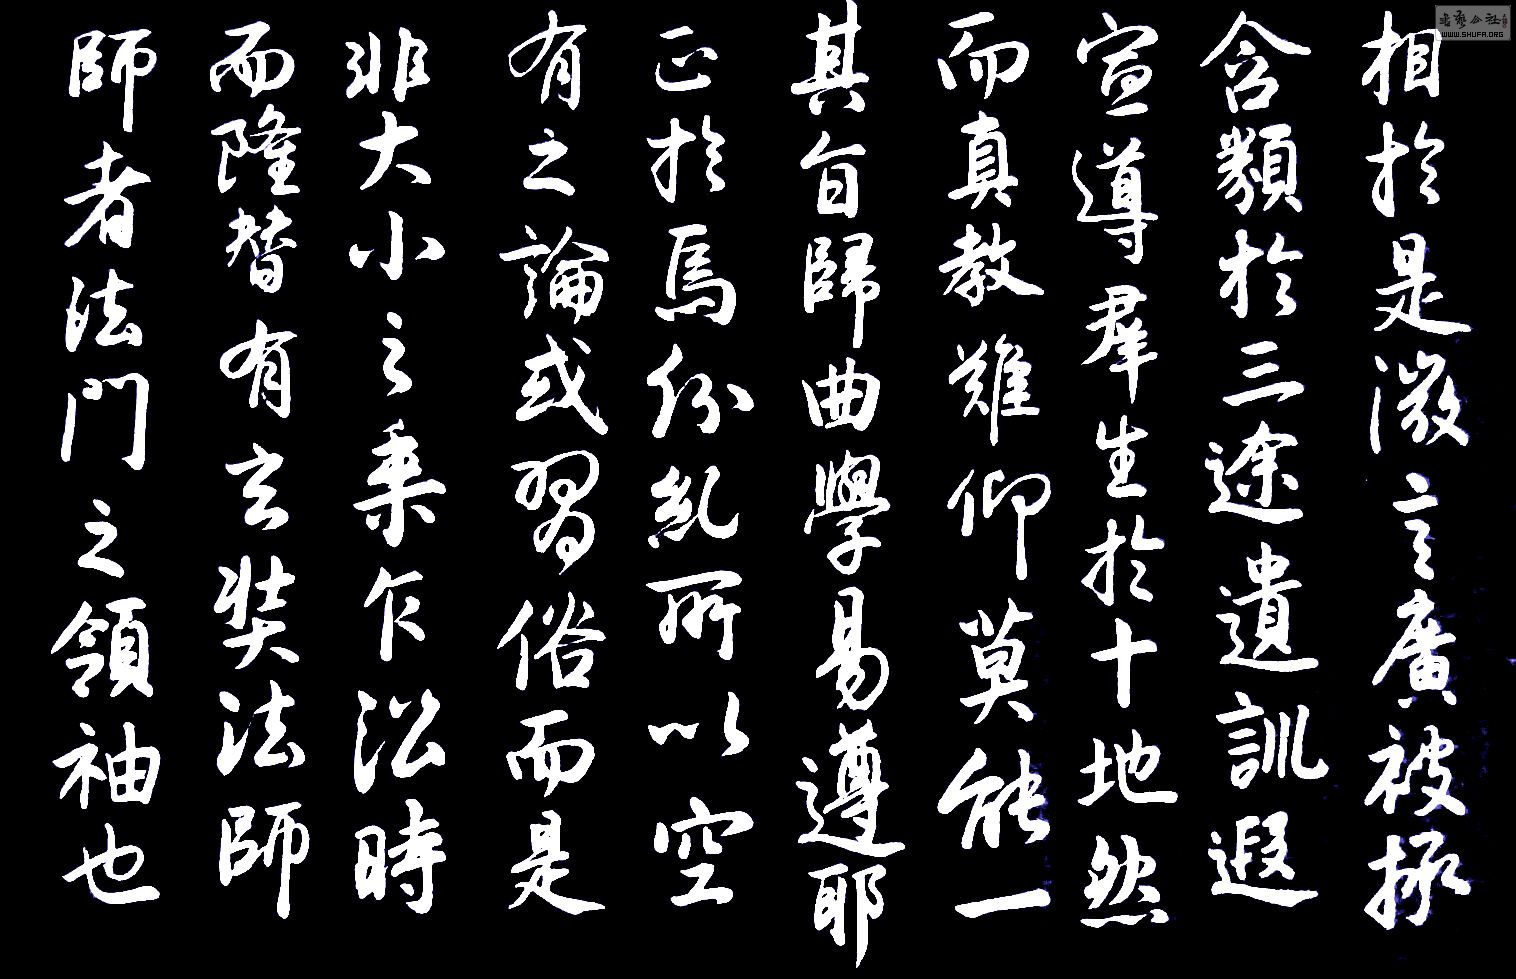 相於是微言廣被拯
含類於三途遺訓遐
宣導羣生於十地然
而真教難仰莫能一
其旨歸曲學易遵耶
正於焉紛糺所以空
有之論或習俗而是
非大小之乘乍沿時
而隆替有玄奘法師
師者法門之領袖也
WWW.SHUFA.ORG